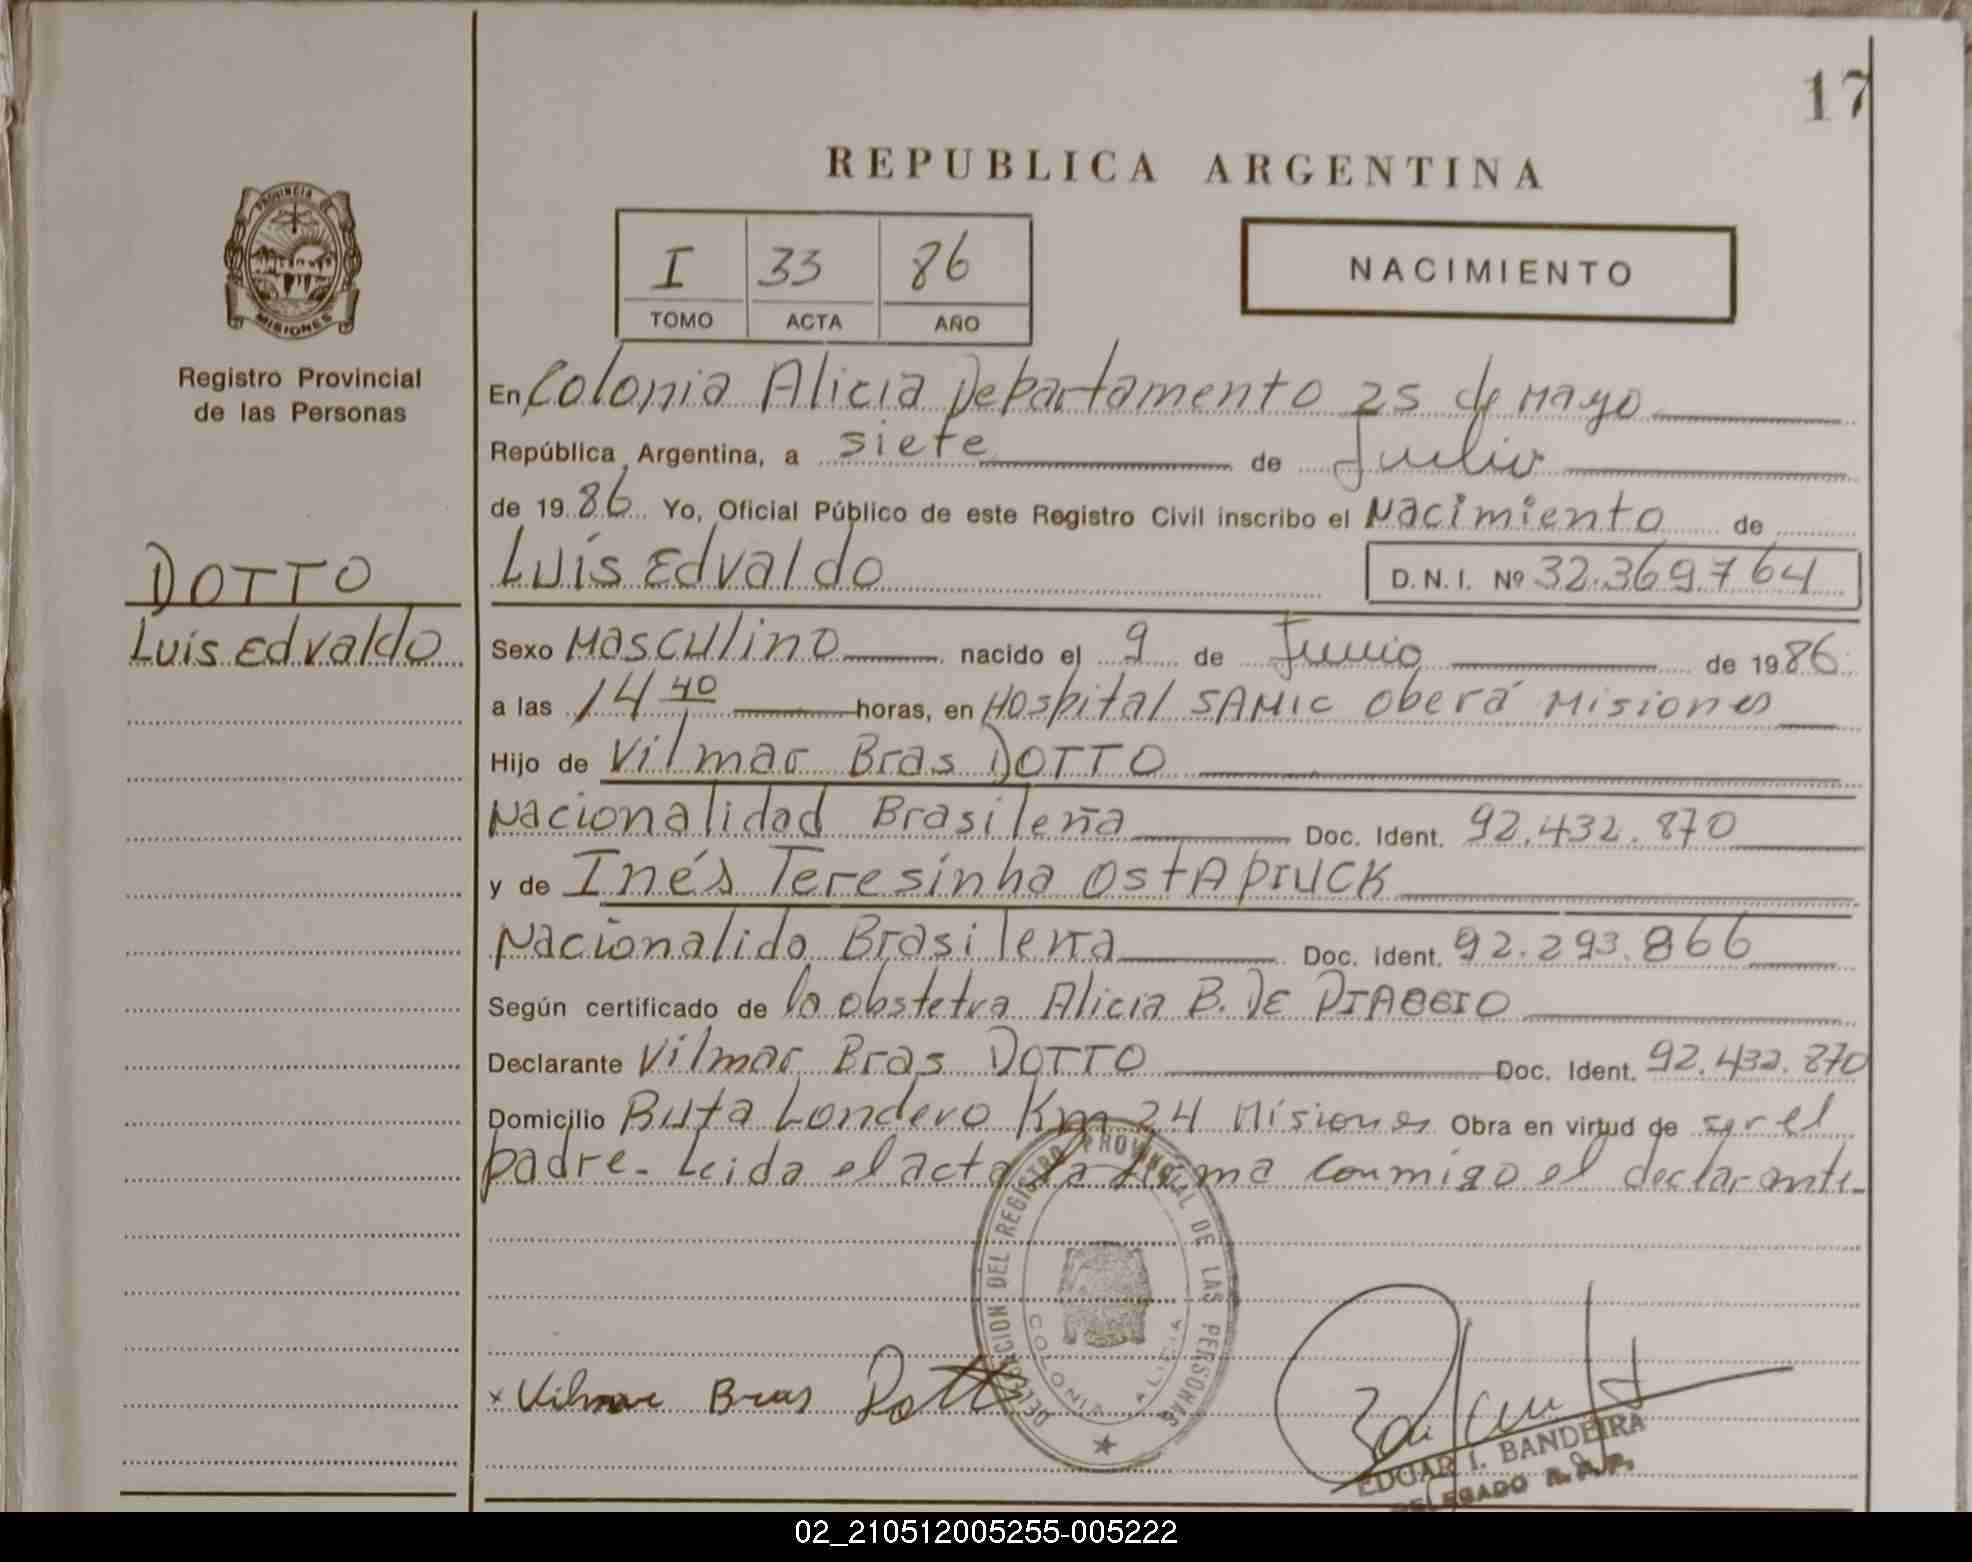 17
REPUBLICA ARGENTINA
PROVINCIA DE
MISIONES
Registro Provincial
de las Personas
I 33 86
TOMO ACTA AÑO
NACIMIENTO
En Colonia Alicia Departamento 25 de Mayo
República Argentina, a siete de Julio
de 1986 Yo, Oficial Público de este Registro Civil inscribo el Nacimiento de
DOTTO
Luis Edvaldo
Luis Edvaldo D.N.I. Nº 32.369.764
Sexo Masculino nacido el 9 de Junio de 1986
a las 14 40 horas, en Hospital SAMIC Oberá Misiones
Hijo de Vilmar Bras DOTTO
Nacionalidad Brasileña Doc. Ident. 92.432.870
y de Inés Teresinha OstAPIUCK
Nacionalida Brasileña Doc. Ident. 92.293.866
Según certificado de la obstetra Alicia B. DE PIAGGIO
Declarante Vilmar Bras DOTTO Doc. Ident. 92.432.870
Domicilio Ruta Londero Km 24 Misiones Obra en virtud de ser el
padre. Leida el acta la firma conmigo el declarante.
DELEGACION DEL REGISTRO PROVINCIAL DE LAS PERSONAS
COLONIA ALICIA
x Vilmar Bras Dotto
EDGAR I. BANDEIRA
DELEGADO R.P.P.
02_210512005255-005222